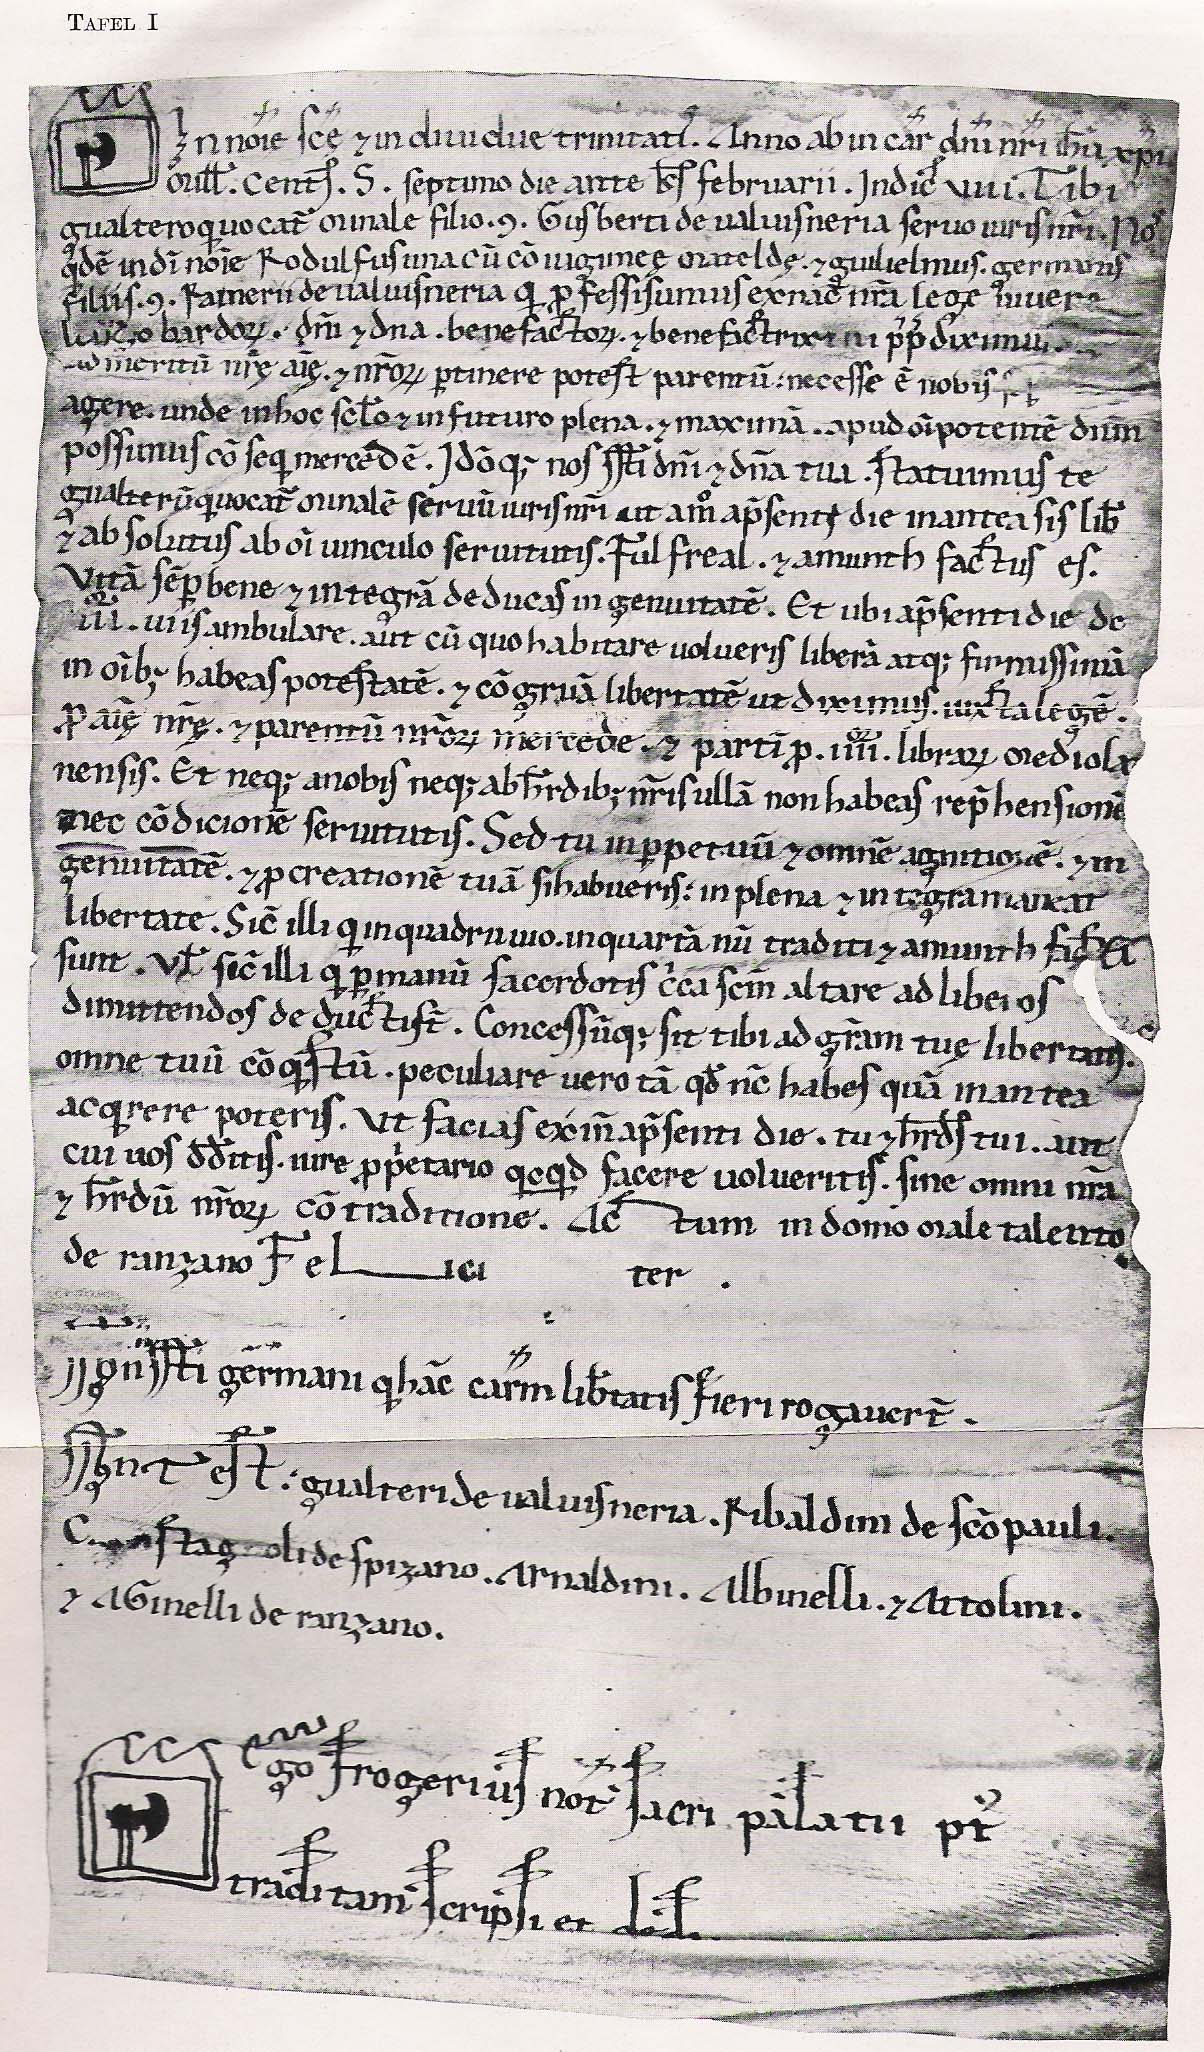 TAFEL I
In noie scę ⁊ in diuidue trinitati. Anno ab in car dni nri ihu xpi
mill. cent. S. septimo die ante kl februarii. Indic VIIII. Tibi
gualtero q uocat oinale filio. ꝯ. Gisberti de ualuisneria seruo iuris nri. Nos
qdē in dī noīe Rodulfus una cū cōiugi meę matelde. ⁊ guilielmus. germanis
filiis. ꝯ. Rainerii de ualuisneria q pfessi sumus ex nac nra lege uiuere
bardoꝝ. dni ⁊ dna. benefactoꝝ. ⁊ benefactrix pp diximus
meritū nrę aīę. ⁊ nroꝝ ptinere potest parentū: necesse ē nobis
agere. unde in hoc sclo ⁊ in futuro plena. ⁊ maximā. apud oīpotentē dnm
possimus cōseqi mercedē. Idoq; nos ssti dni ⁊ dna tua. Statuimus te
gualterū q uocat oinalē seruū iuris nri ut amo apsenti die inantea sis lib
⁊ absolutus ab oī uinculo seruitutis. Fulfreal. ⁊ amunth factus es.
Vitā sēp bene ⁊ integrā deducas ingenuitatē. Et ubi apsenti die de
iiii. uiis ambulare. aut cū quo habitare uolueris liberā atq; firmissimā
in oīb; habeas potestatē. ⁊ cōgruā libertatē ut diximus. iuxta legē.
ꝓ aīę nrę. ⁊ parentū nroꝝ mercede. ⁊ partī ꝓ. iiii. libraꝝ mediola
nensis. Et neq; a nobis neq; ab hrdib; nris ullā non habeas rephensionē
nec cōdicionē seruitutis. Sed tu in ppetuū ⁊ omnē agnitionē. ⁊ in
genuitatē. ⁊ ꝓcreationē tuā si habueris: in plena ⁊ integra maneat
libertate. Sic illi q in quadruuio. in quartā nū traditi ⁊ amunth facti
sunt. Vl sic illi q p manū sacerdotis cca scm altare ad liberos
dimittendos deducti st. Concessūq; sit tibi ad gram tuę libertatis.
omne tuū cōqstū. peculiare uero tā qd nc habes quā inantea
acqrere poteris. Ut facias exim apsenti die. tu ⁊ hrds tui. aut
cui uos dditis. iure pprietario qcqd facere uolueritis. sine omni nra
⁊ hrdū nroꝝ cōtraditione. Actum in domo maletalento
de ranzano Feliciter.
ssti germani q hāc carm libtatis fieri rogauert.
test: gualteri de ualuisneria. Ribaldini de scō pauli.
oli de spizano. Arnaldini. Albinelli. ⁊ Attolini.
⁊ AGinelli de ranzano.
ego frogerius not sacri palatii pt
traditam scripsi et